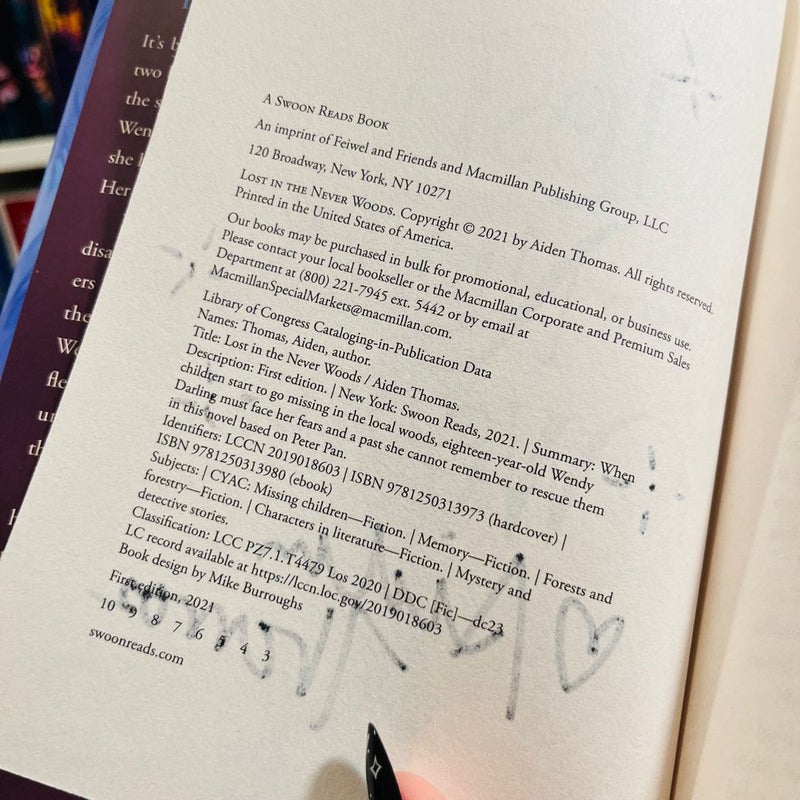 It's
two
the
Wen
she
Her
disa
ers
the
A Swoon Reads Book
An imprint of Feiwel and Friends and Macmillan Publishing Group, LLC
120 Broadway, New York, NY 10271
Lost in the Never Woods. Copyright © 2021 by Aiden Thomas. All rights reserved.
Printed in the United States of America.
Our books may be purchased in bulk for promotional, educational, or business use.
Please contact your local bookseller or the Macmillan Corporate and Premium Sales
Department at (800) 221-7945 ext. 5442 or by email at
MacmillanSpecialMarkets@macmillan.com.
Library of Congress Cataloging-in-Publication Data
Names: Thomas, Aiden, author.
Title: Lost in the Never Woods / Aiden Thomas.
Description: First edition. | New York: Swoon Reads, 2021. | Summary: When
children start to go missing in the local woods, eighteen-year-old Wendy
Darling must face her fears and a past she cannot remember to rescue them
in this novel based on Peter Pan.
Identifiers: LCCN 2019018603 | ISBN 9781250313973 (hardcover) |
ISBN 9781250313980 (ebook)
Subjects: | CYAC: Missing children—Fiction. | Memory—Fiction. | Forests and
forestry—Fiction. | Characters in literature—Fiction. | Mystery and
detective stories.
Classification: LCC PZ7.1.T4479 Los 2020 | DDC [Fic]—dc23
LC record available at https://lccn.loc.gov/2019018603
Book design by Mike Burroughs
First edition, 2021
10 9 8 7 6 5 4 3
swoonreads.com